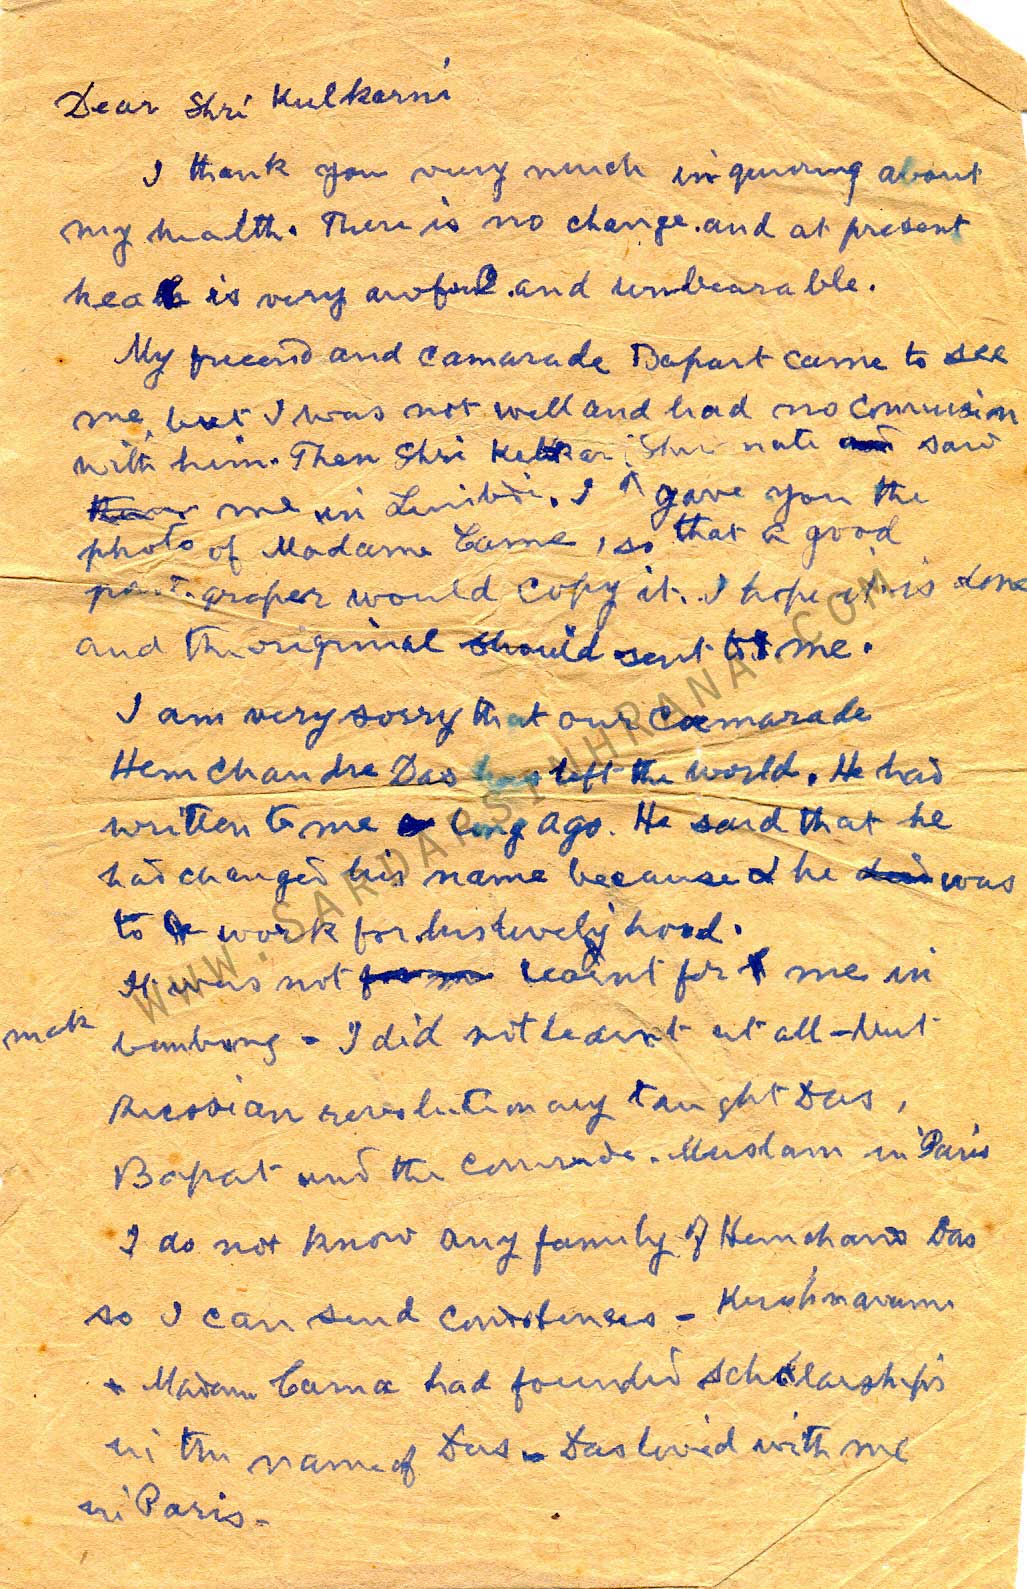 Dear Shri Kulkarni
I thank you very much in quiring about
my health. There is no change. and at present
heat is very awful. and unbearable.
My friend and camarade Bapart came to see
me, but I was not well and had no
with him. Then Shri Shri nate saw
me in Limbdi. I gave you the
photo of Madame Came, so that a good
would copy it. I hope it is done
and the original sent to me.
I am very sorry that our camarade
Hemchandre Das has left the world. He had
written to me long ago. He said that he
had changed his name because he was
to work for his livelyhood.
It was not for me in
mak
bombing - I did not learnt at all - but
Russian revolutionary taught Das,
Bapat and the comrade. in Paris
I do not know any family of Hemchand Das
so I can send -
Madam Cama had founded scholarships
in the name of Das - Das lived with me
in Paris -
WWW.SARDARSINHRANA.COM